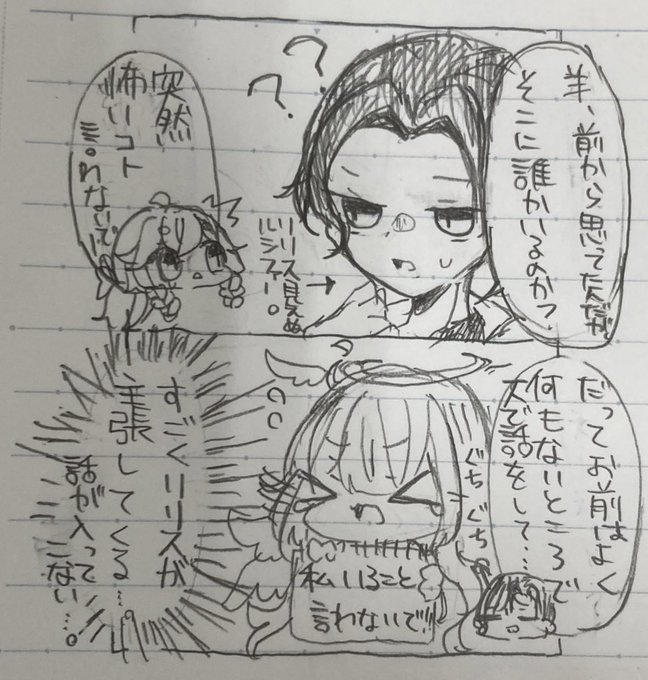 羊、前から思ってたんだが
そこに誰かいるのかっ
？？
リリス見えぬ
ルシファー。
→
突然
怖いコト
言わないで
だってお前はよく
何もないところで
大で話をして…
ぐちぐち
私いること
言わないで!!
すごくリリスが
主張してくる…。
話が入って
こない…。